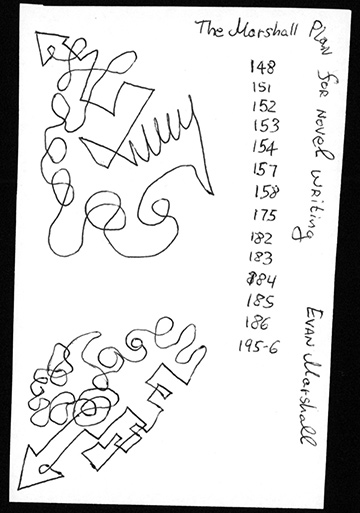 The Marshall Plan for Novel Writing
Evan Marshall
148
151
152
153
154
157
158
175
182
183
184
185
186
195-6